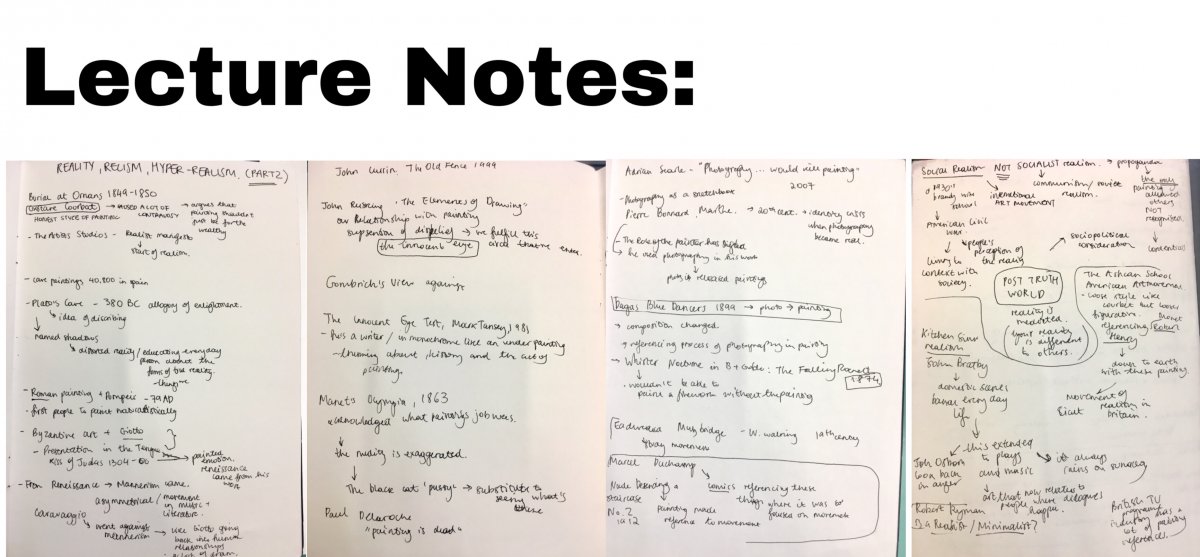 Lecture Notes:
REALITY, RELISM, HYPER-REALISM. (PART 2)
Burial at Ornans 1849-1850
Gustave Courbat → CAUSED A LOT OF CONTROVOSY → argues that
HONEST STATE OF PAINTING
painting shouldn't
just be for the
wealthy
- The Artists Studios - Realist manifesto
start of realism.
- cave paintings 40.800 in spain
- Plato's Cave - 380 BC allegory of enligtament.
idea of discribing
named shadows
distorted reality/educating everyday
person about the
forms of true reality.
- Roman painting + Pompeii - 79AD
- first people to paint naturalistically
- Byzantine art + Giotto
- Presentation in the
Kiss of Judas 1304-
painted
emotion.
reneissance
came from this
- From Renaissance → Mannerism came.
asymmetrical / movement
in music +
literature.
Caravaggio
went against
mannerism
like Giotto going
back into human
relationships
John Currin The Old Fence 1999
John Ruskin, "The Elements of Drawing"
our Relationship with painting
suspension of disbelief → we fulfill this
the innocent eye
Gombrich's View against
The Innocent Eye Test, Mark Tansey, 1981
- in monochrome like an under painting
- knowing about history and the act of
painting.
Manet's Olympia, 1863
acknowledged what paintings job was.
the nudity is exaggerated.
The black cat 'pussy' → substitute to
seeing what's
there
Paul Delaroche
"painting is dead"
Adrian Searle - "Photography ... would kill painting"
2007
- Photography as a sketchbook
Pierre Bonnard, Marthe. → 20th cent. → identity crisis
when photography
became real.
- The Role of the painter has shifted
→ he used photography in his work
Dagas Blue Dancers 1899 → photo → painting
→ composition changed.
→ referencing process of photography in painting
→ Whister Nocturne in B + Golde: The Falling Rocket
1874
- wouldn't be able to
paint a firework without the painting
Eadweard Muybridge - 19th century
stray movement
Marcel Duchamp
Nude Descending a
staircase
No. 2
1912
comics referencing these
things where it was so
focused on movement
painting made
reference to movement
Social Realism NOT SOCIALIST realism. → propaganda
communism/soviet
realism
the only
painting
allowed
others
NOT
recognised.
international
ART MOVEMENT
American Civil
War.
people's
perception of
the reality
sociopolitical
consideration
context with
society.
POST TRUTH
WORLD
reality is
mediated.
your reality
is different
to others.
The Ashcan School
American Art movement
- loose style like
courbet but looser
figurative.
referencing Robert
Henry
down to earth
with these painting.
Kitchen Sink
realism
John Bratby
domestic scenes
banal every day
life
movement of
realism in
Britain.
this extended
to plays
and music
it always
rains on sunday
John Osborn
Look back
in anger
art that now relates to
people where dialogues
happen.
Robert Ryman
Is a Realist / Minimalist?
British TV
programe
industry has a
lot of painting
references.